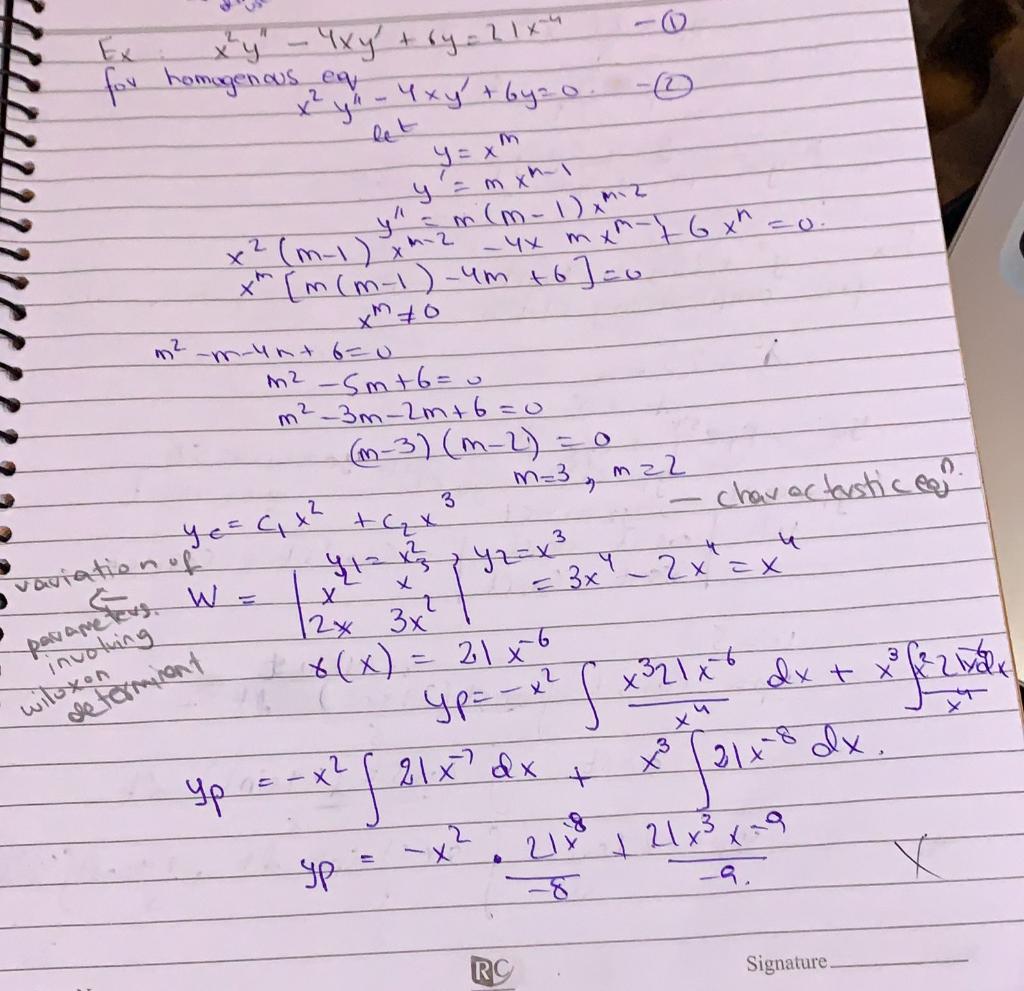 Ex x²y" - 4xy' + 6y = 21x⁻⁴ - ①
for homogenous eq
x² y" - 4xy' + 6y = 0. - ②
let
y = xᵐ
y' = m xᵐ⁻¹
y" = m(m-1) xᵐ⁻²
x² (m-1) xᵐ⁻² - 4x m xᵐ⁻¹ + 6 xᵐ = 0.
xᵐ [m(m-1) - 4m + 6] = 0
xᵐ ≠ 0
m² - m - 4m + 6 = 0
m² - 5m + 6 = 0
m² - 3m - 2m + 6 = 0
(m-3) (m-2) = 0
m=3, m=2
- charactersticeqⁿ.
y_c = c₁ x² + c₂ x³
y₁ = x², y₂ = x³
variation of
←
parameters.
involving
wiluxon
determinant
W = | x² x³ |
| 2x 3x² | = 3x⁴ - 2x⁴ = x⁴
r(x) = 21x⁻⁶
yp = -x² ∫ x³21x⁻⁶/x⁴ dx + x³ ∫ x² 21x⁻⁶dx/x⁴
yp = -x² ∫ 21x⁻⁷ dx + x³ ∫ 21x⁻⁸ dx.
yp = -x² . 21x⁻⁸/-8 + 21x³ x⁻⁹/-9.
X
RC
Signature